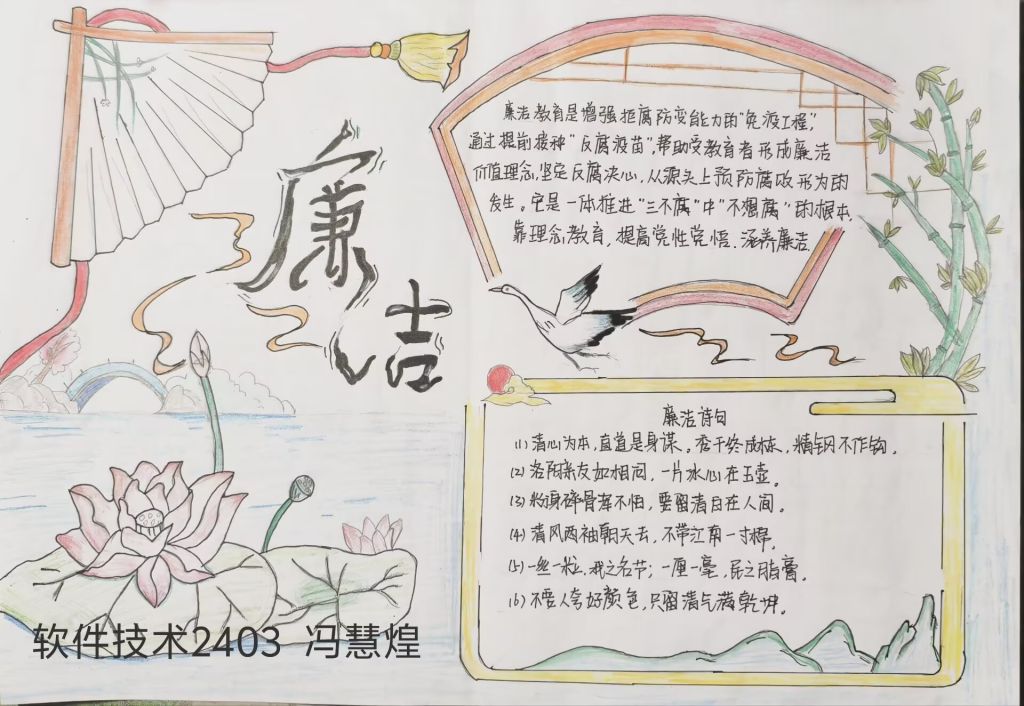 廉洁
廉洁教育是增强拒腐防变能力的“免疫工程”,
通过提前接种“反腐疫苗”,帮助受教育者形成廉洁
价值理念,坚定反腐决心,从源头上预防腐败形为的
发生。它是一体推进“三不腐”中“不想腐”的根本,
靠理念教育,提高党性觉悟、涵养廉洁
廉洁诗句
(1) 清心为本,直道是身谋。秀干终成栋,精钢不作钩。
(2) 洛阳亲友如相问,一片冰心在玉壶。
(3) 粉身碎骨浑不怕,要留清白在人间。
(4) 清风两袖朝天去,不带江南一寸棉。
(5) 一丝一粒,我之名节;一厘一毫,民之脂膏。
(6) 不要人夸好颜色,只留清气满乾坤。
软件技术2403 冯慧煌